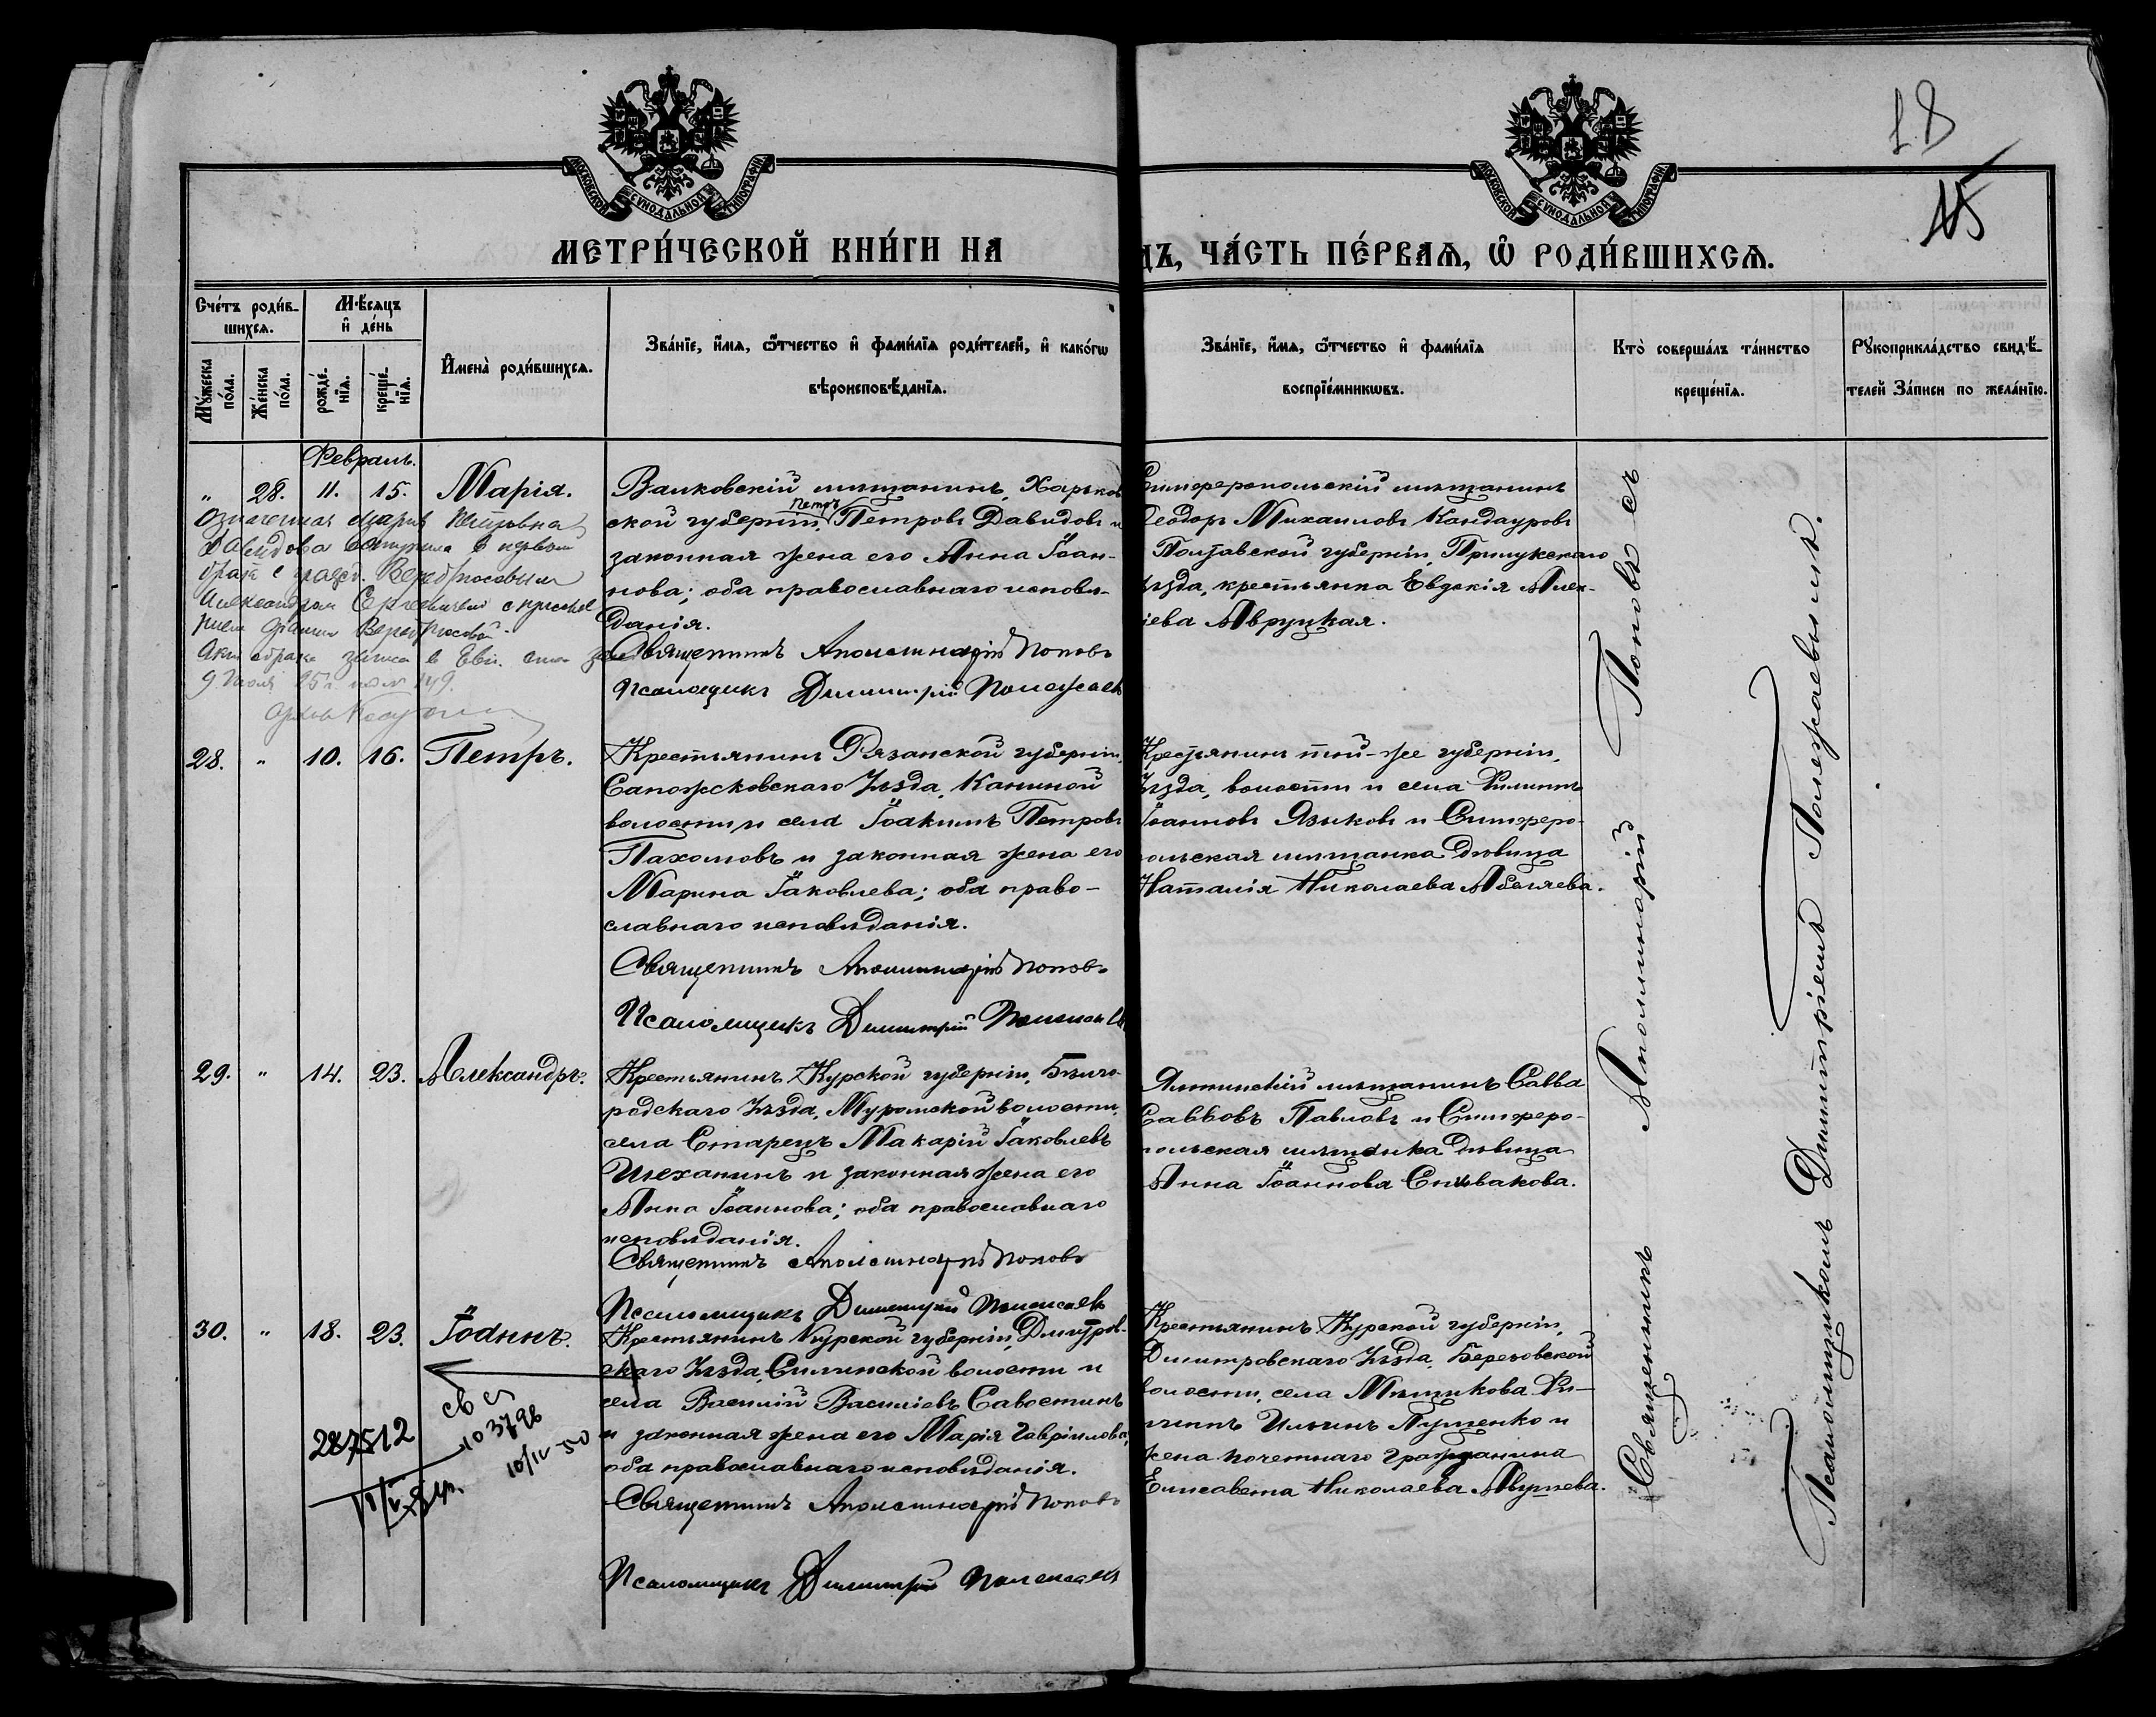 МОСКОВСКОЙ СѴНОДАЛЬНОЙ ТИПОГРАФІИ
МОСКОВСКОЙ СѴНОДАЛЬНОЙ ТИПОГРАФІИ
18
15
МЕТРИ́ЧЕСКОЙ КНИ́ГИ НА
ДЪ, ЧА́СТЬ ПЕ́РВАѦ, Ѡ҆ РОДИ́ВШИХСѦ.
Сче́тъ роди́в-
шихсѧ.
Мѣ́сѧцъ
и҆ де́нь
Мꙋ́жеска по́ла.
Же́нска по́ла.
рожде́-нїѧ.
креще́-нїѧ.
И҆мена̀ роди́вшихсѧ.
Зва́нїе, и҆́мѧ, ѻ҆́тчество и҆ фами́лїѧ роди́телей, и҆ како́гѡ
вѣроисповѣ́данїѧ.
Зва́нїе, и҆́мѧ, ѻ҆́тчество и҆ фами́лїѧ
воспрїе́мникѡвъ.
Кто̀ соверша́лъ та́инство
креще́нїѧ.
Рꙋкоприкла́дство свидѣ́-
телей За́писи по жела́нїю.
Февраль.
" 28. 11. 15. Марія.
Валковскій мѣщанинъ, Харьков
ской губерніи, Петръ Петровъ Давидовъ и
законная жена его Анна Іоан-
нова; оба православнаго исповѣ-
данія.
Священникъ Аполлинарій Поповъ
Псаломщикъ Димитрій Полежаевъ
Симферопольскій мѣщанинъ
Ѳеодоръ Михаиловъ Кандауровъ
Полтавской губерніи, Прилукскаго
уѣзда, крестьянка Евдокія Алек-
іева Авруцкая.
Означенная Мария Петровна
Давидова вступила в первый
брак с гражд.
Александром Сергеевичем с присвое
нием фамилии
9 июля 25 г. № 149.
28. " 10. 16. Петръ.
Крестьянинъ Рязанской губерніи,
Сапожсковскаго Уѣзда, Каниной
волости и села Іоакимъ Петровъ
Пахомовъ и законная жена его
Марина Іаковлева; оба право-
славнаго исповѣданія.
Священникъ Аполлинарій Поповъ
Псаломщикъ Димитрій Полежаевъ
Крестьянинъ той-же губерніи,
Уѣзда, волости и села Филиппъ
Іоанновъ Языковъ и Симферо-
польская мѣщанка дѣвица
Наталія Николаева Абаляева.
29. " 14. 23. Александръ.
Крестьянинъ Курской губерніи, Бѣлго-
родскаго Уѣзда, Муромской волости,
села Старецъ Макарій Іаковлевъ
Шеханинъ и законная жена его
Анна Іоаннова; оба православнаго
исповѣданія.
Священникъ Аполлинарій Поповъ
Псаломщикъ Димитрій Полежаевъ
Ялтинскій мѣщанинъ Савва
Саввовъ Павловъ и Симферо-
польская мѣщанка дѣвица
Анна Іоаннова Спивакова.
30. " 18. 23. Іоаннъ.
Крестьянинъ Курской губерніи, Дмитров-
скаго Уѣзда, Силинской волости и
села Василій Василіевъ Савостинъ
и законная жена его Марія Гавріилова;
оба православнаго исповѣданія.
Священникъ Аполлинарій Поповъ
Псаломщикъ Димитрій Полежаевъ
Крестьянинъ Курской губерніи,
Дмитровскаго Уѣзда, Березовской
волости, села Мѣшкова Фи-
липпъ Ильинъ Лущенко и
жена почетнаго гражданина
Елисавета Николаева
287512
103796
10/IV 50
Священникъ Аполлинарій Поповъ съ
Псаломщикомъ Димитріемъ Полежаевымъ.